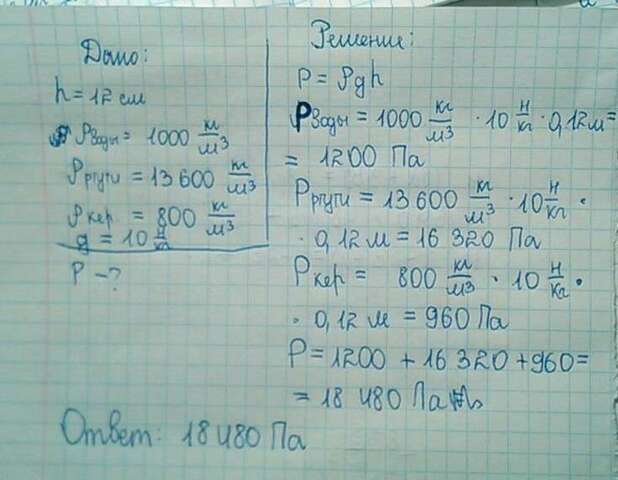 Дано:
h = 12 см
ρводы = 1000 кг/м³
ρртути = 13 600 кг/м³
ρкер = 800 кг/м³
g = 10 Н/кг
P - ?
Решение:
P = ρgh
Pводы = 1000 кг/м³ · 10 Н/кг · 0,12м =
= 1200 Па
Pртути = 13 600 кг/м³ · 10 Н/кг ·
· 0,12 м = 16 320 Па
Pкер = 800 кг/м³ · 10 Н/кг ·
· 0,12 м = 960 Па
P = 1200 + 16 320 + 960 =
= 18 480 Па
Ответ: 18 480 Па